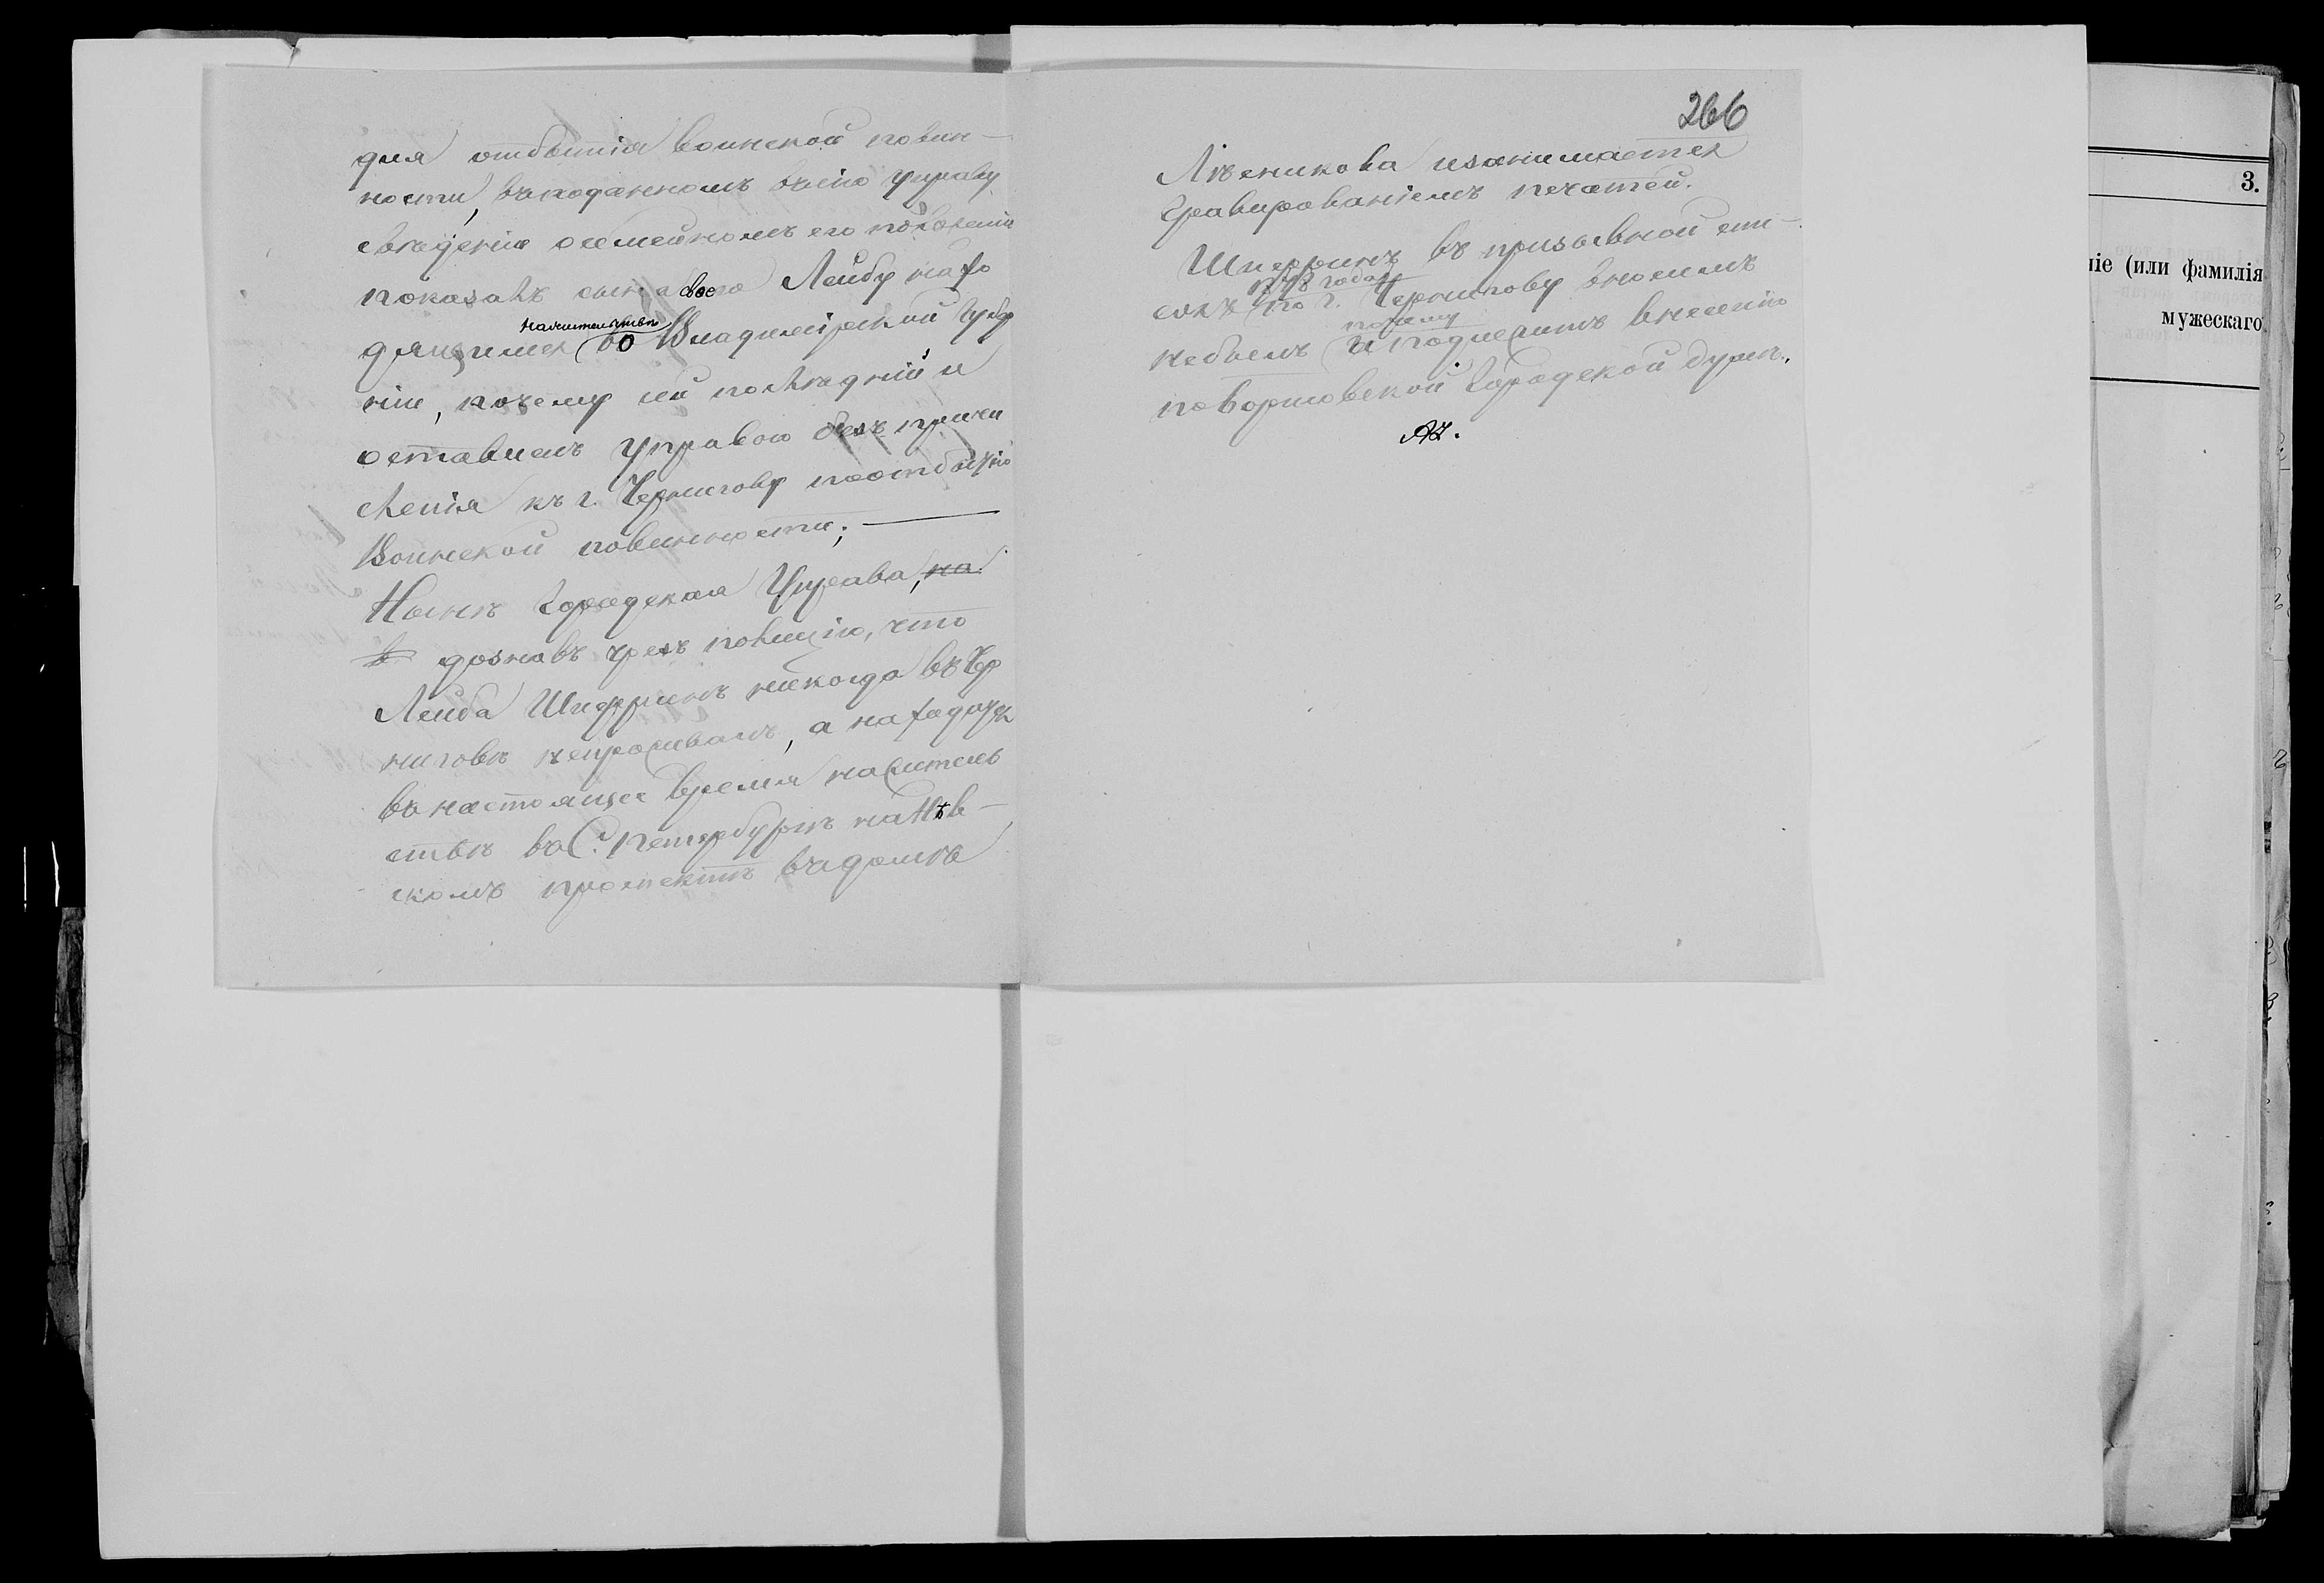 для отбытія воинской повин-
ности, въ поданномъ въ сію управу
свѣденіи о семейномъ его положеніи
показалъ сына своего Лейбу нахо
дящимся на жительствѣ во Владимірской Губер
ніи, почему сей послѣдній и
оставленъ Управою безъ причи
сленія къ г. Чернигову по отбытію
Воинской повинности;
Нынѣ Городская Управа, на
в дознавъ чрезъ полицію, что
Лейба Шифринъ никогда въ Чер
ниговѣ непроживалъ, а находится
въ настоящее время на житель
ствѣ въ С. Петербургѣ на Нѣв-
скомъ проспектѣ въ домѣ
266
Лѣсникова и занимается
гравированіемъ печатей.
Шифринъ въ призывной спи-
сокъ 1878 года по г. Чернигову вносимъ
небылъ и потому подлежитъ внесенію
по Городской думѣ.
3.
ніе (или фамилія
мужескаго